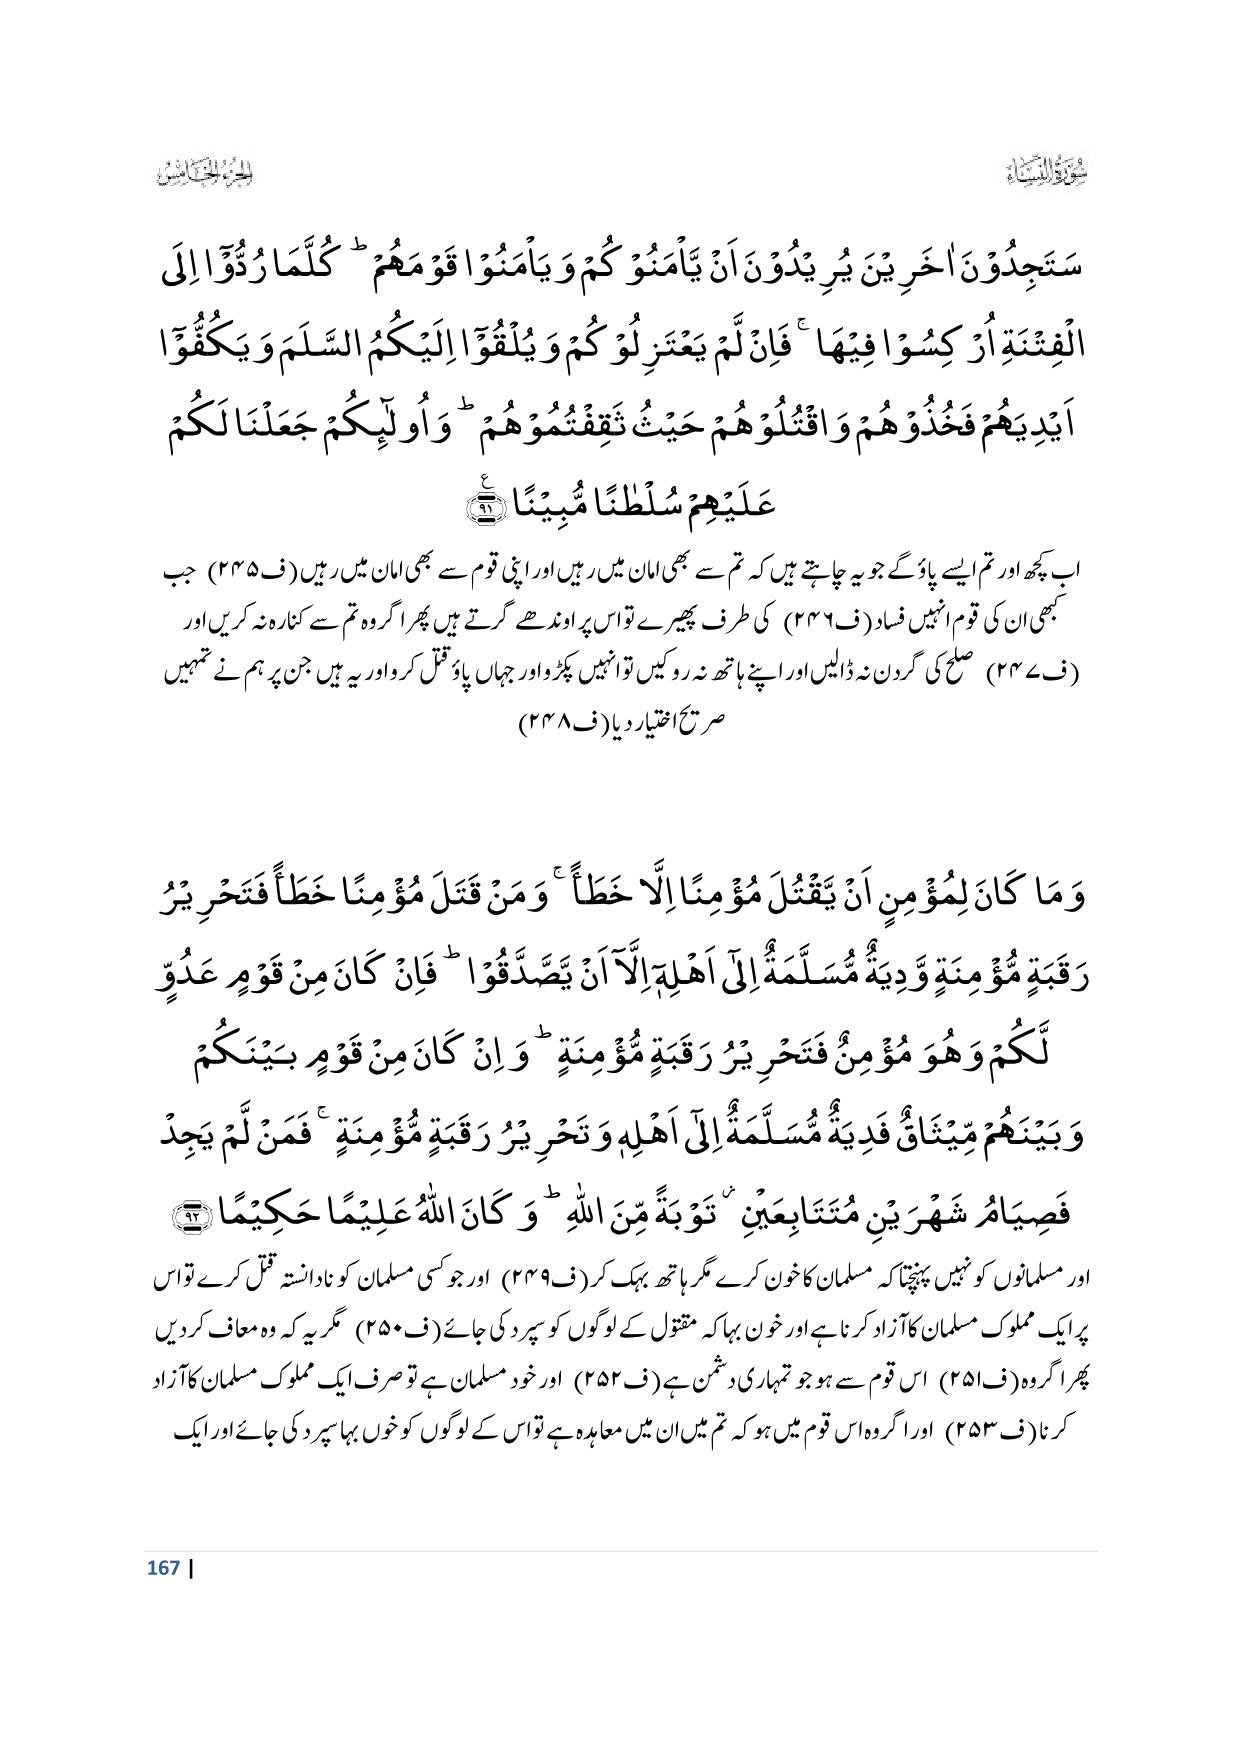 سُوْرَةُ النِّسَاۤء
الجزء الخامس
سَتَجِدُوْنَ اٰخَرِيْنَ يُرِيْدُوْنَ اَنْ يَّاْمَنُوْكُمْ وَيَاْمَنُوْا قَوْمَهُمْ ؕ كُلَّمَا رُدُّوْۤا اِلَى
الْفِتْنَةِ اُرْكِسُوْا فِيْهَا ۚ فَاِنْ لَّمْ يَعْتَزِلُوْكُمْ وَيُلْقُوْۤا اِلَيْكُمُ السَّلَمَ وَيَكُفُّوْۤا
اَيْدِيَهُمْ فَخُذُوْهُمْ وَاقْتُلُوْهُمْ حَيْثُ ثَقِفْتُمُوْهُمْ ؕ وَاُولٰٓئِكُمْ جَعَلْنَا لَكُمْ
عَلَيْهِمْ سُلْطٰنًا مُّبِيْنًا ﴿۹۱﴾ ع
اب کچھ اور تم ایسے پاؤ گے جو یہ چاہتے ہیں کہ تم سے بھی امان میں رہیں اور اپنی قوم سے بھی امان میں رہیں (ف۲۴۵) جب
کبھی ان کی قوم انہیں فساد (ف۲۴۶) کی طرف پھیرے تو اس پر اوندھے گرتے ہیں پھر اگر وہ تم سے کنارہ نہ کریں اور
(ف۲۴۷) صلح کی گردن نہ ڈالیں اور اپنے ہاتھ نہ روکیں تو انہیں پکڑو اور جہاں پاؤ قتل کرو اور یہ ہیں جن پر ہم نے تمہیں
صریح اختیار دیا (ف۲۴۸)
وَمَا كَانَ لِمُؤْمِنٍ اَنْ يَّقْتُلَ مُؤْمِنًا اِلَّا خَطَـًٔا ۚ وَمَنْ قَتَلَ مُؤْمِنًا خَطَـًٔا فَتَحْرِيْرُ
رَقَبَةٍ مُّؤْمِنَةٍ وَّدِيَةٌ مُّسَلَّمَةٌ اِلٰۤى اَهْلِهٖۤ اِلَّاۤ اَنْ يَّصَّدَّقُوْا ؕ فَاِنْ كَانَ مِنْ قَوْمٍ عَدُوٍّ
لَّكُمْ وَهُوَ مُؤْمِنٌ فَتَحْرِيْرُ رَقَبَةٍ مُّؤْمِنَةٍ ؕ وَاِنْ كَانَ مِنْ قَوْمٍۭ بَيْنَكُمْ
وَبَيْنَهُمْ مِّيْثَاقٌ فَدِيَةٌ مُّسَلَّمَةٌ اِلٰۤى اَهْلِهٖ وَتَحْرِيْرُ رَقَبَةٍ مُّؤْمِنَةٍ ۚ فَمَنْ لَّمْ يَجِدْ
فَصِيَامُ شَهْرَيْنِ مُتَتَابِعَيْنِ ۫ تَوْبَةً مِّنَ اللّٰهِ ؕ وَكَانَ اللّٰهُ عَلِيْمًا حَكِيْمًا ﴿۹۲﴾
اور مسلمانوں کو نہیں پہنچتا کہ مسلمان کا خون کرے مگر ہاتھ بہک کر (ف۲۴۹) اور جو کسی مسلمان کو نادانستہ قتل کرے تو اس
پر ایک مملوک مسلمان کا آزاد کرنا ہے اور خون بہا کہ مقتول کے لوگوں کو سپرد کی جائے (ف۲۵۰) مگر یہ کہ وہ معاف کردیں
پھر اگر وہ (ف۲۵۱) اس قوم سے ہو جو تمہاری دشمن ہے (ف۲۵۲) اور خود مسلمان ہے تو صرف ایک مملوک مسلمان کا آزاد
کرنا (ف۲۵۳) اور اگر وہ اس قوم میں ہو کہ تم میں ان میں معاہدہ ہے تو اس کے لوگوں کو خوں بہا سپرد کی جائے اور ایک
167 |